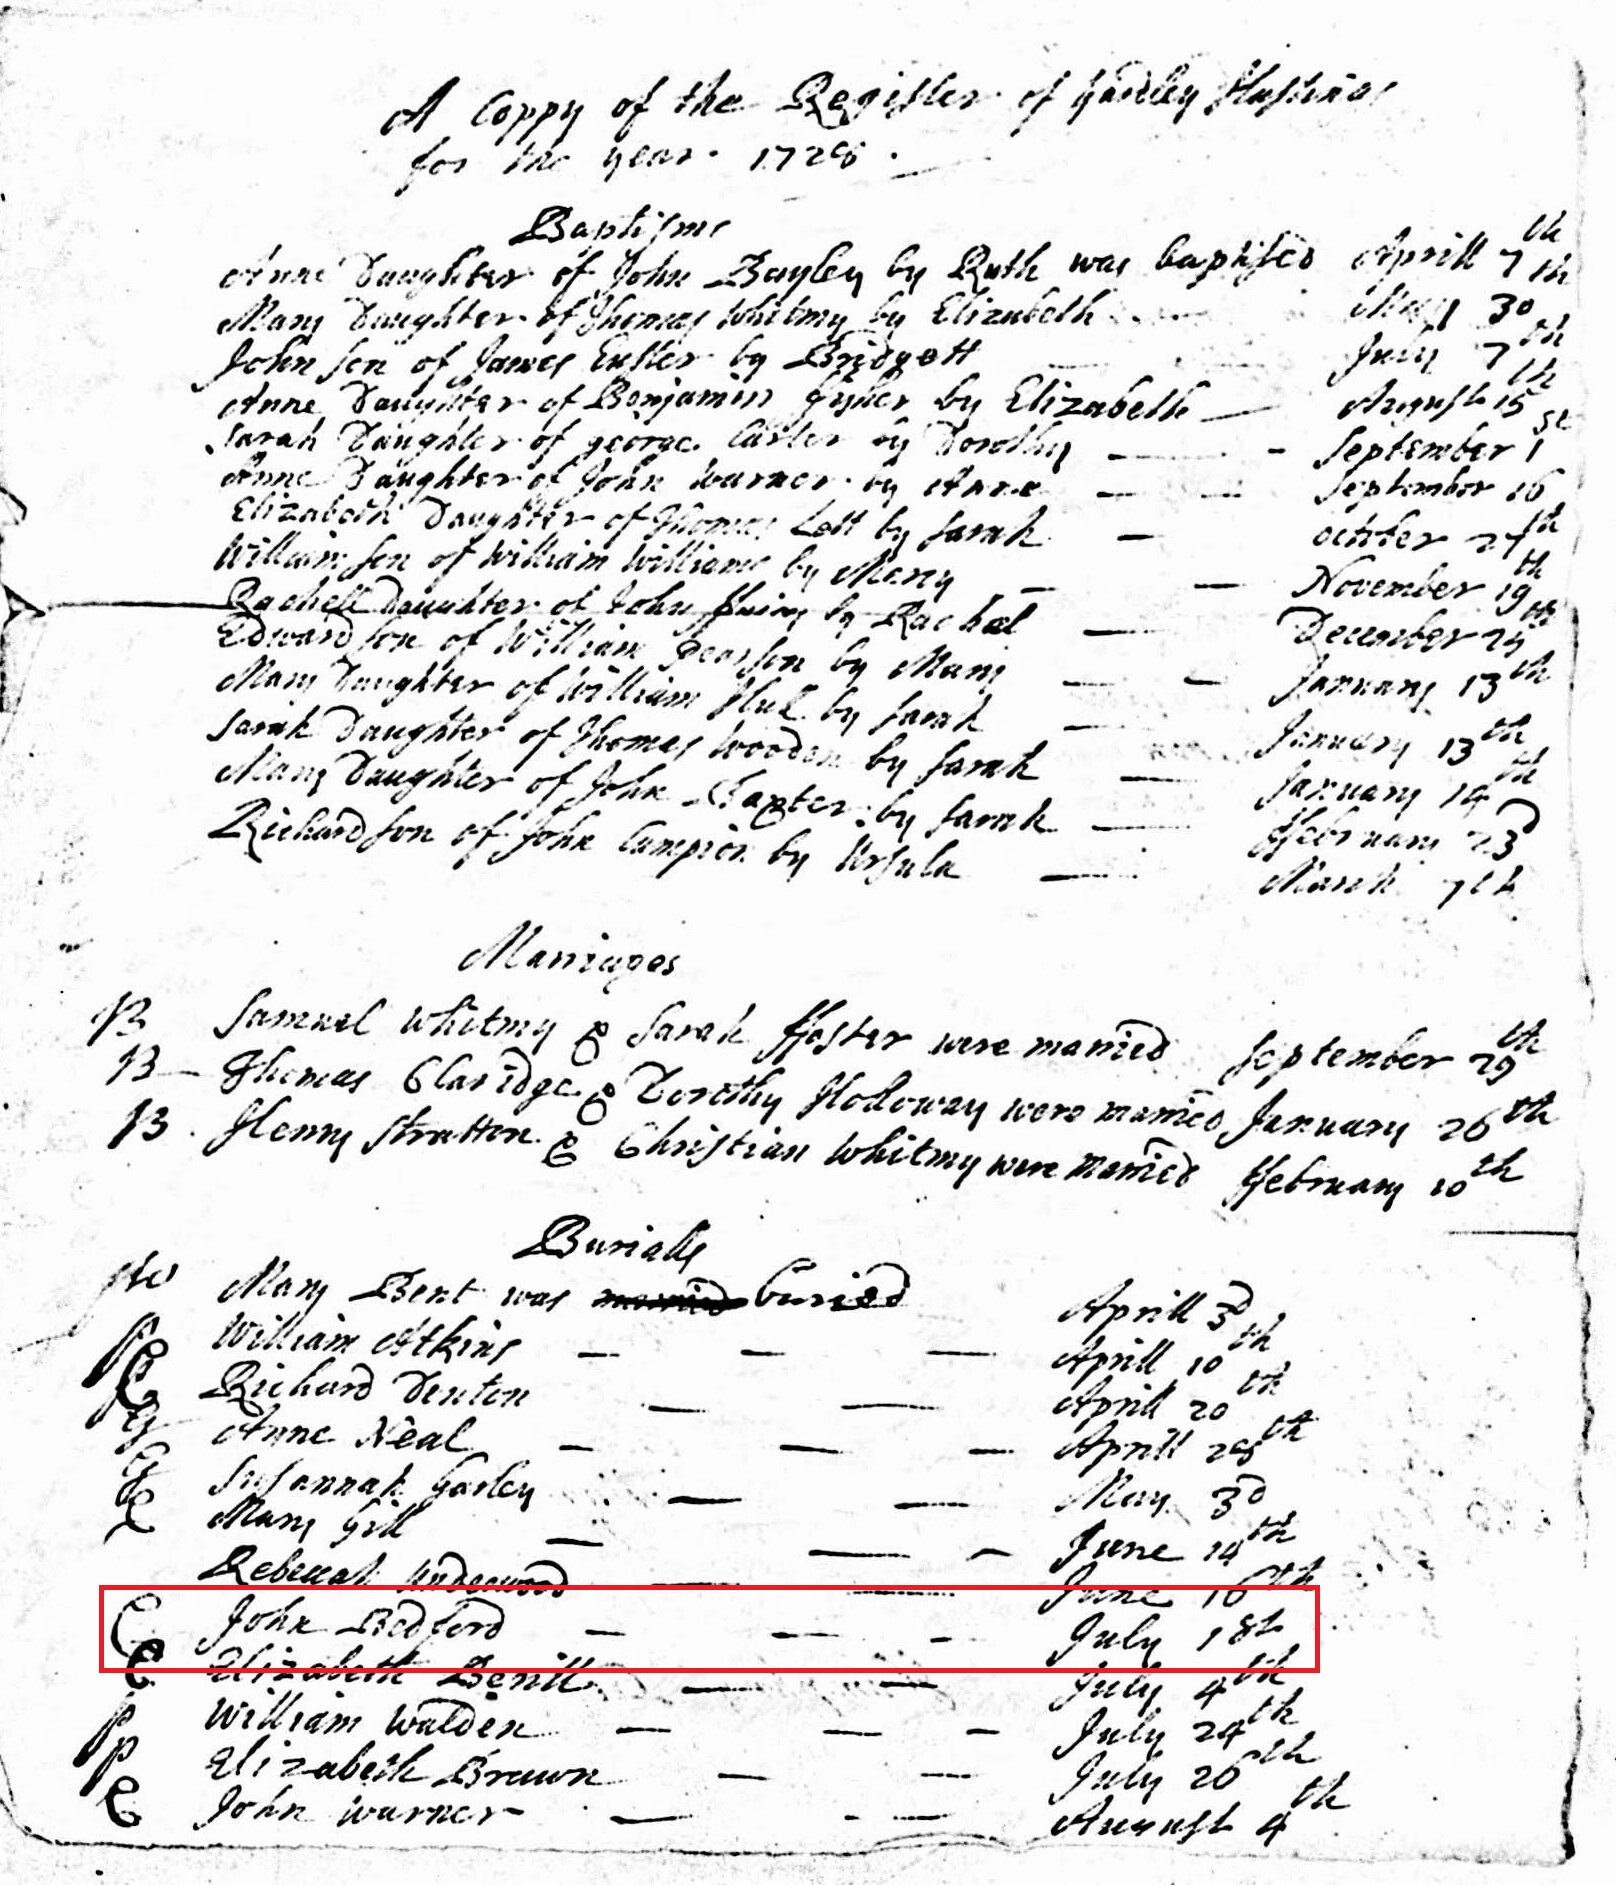 A Coppy of the Register of Yardley Hastings
for the year 1728
Baptisms
Anne Daughter of John Bayley by Ruth was baptised Aprill 7th
Mary Daughter of Thomas Whitmy by Elizabeth May 30th
John son of James by Bridgett July 7th
Anne Daughter of Benjamin fisher by Elizabeth August 15th
Sarah Daughter of george Carter by Dorothy September 1st
Anne Daughter of John Warner by Anne September 16
Elizabeth Daughter of Thomas Lett by Sarah october 27th
William son of William Williams by Mary November 19th
Rachell Daughter of John by Rachel December 29th
Edward son of William Pearson by Mary January 13th
Mary Daughter of William Hul by Sarah January 13th
Sarah Daughter of Thomas Wooden by Sarah January 14th
Mary Daughter of John Baxter by Sarah ffebruary 23d
Richard son of John Campion by Ursula March 7th
Marriages
B Samuel Whitmy & Sarah ffoster were married September 29th
B Thomas Claridge & Dorothy Holloway were married January 26th
B Henry Stratton & Christian Whitmy were married ffebruary 10th
Burialls
Mary Bent was married buried Aprill 3d
William Atkins Aprill 10th
Richard Denton Aprill 20th
Anne Neal Aprill 28th
Susannah Garley May 3d
Mary Gill June 14th
Rebecah Underwood June 16th
C John Bedford July 1st
C Elizabeth July 4th
p William Walden July 24th
p Elizabeth Brawn July 26th
C John Warner August 4th